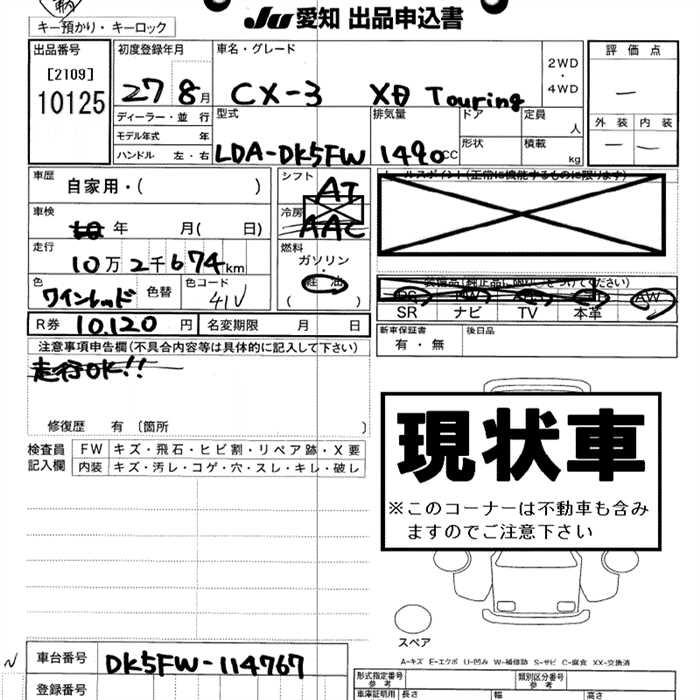 キー預かり・キーロック
JU 愛知 出品申込書
出品番号
[2109]
10125
初度登録年月
27 8月
ディーラー・並行
モデル年式 年
ハンドル 左・右
車名・グレード
CX-3 XD Touring
2WD
・
4WD
型式
LDA-DK5FW
排気量
1490cc
ドア
形状
定員
人
積載
kg
評価点
―
外装 内装
― ―
車歴
自家用・( )
車検
年 月( 日)
走行
10万2千674km
色
ワインレッド
色替
色コード
41V
シフト
AT
冷房
AAC
燃料
ガソリン
・
軽油
( )
R券 10,120 円
名変期限 月 日
(正常に機能するものに限ります)
AW
SR ナビ TV 本革
新車保証書
有・無
後日品
注意事項申告欄(不具合内容等は具体的に記入して下さい)
走行OK!!
修復歴 有 〔箇所 〕
検査員
記入欄
FW キズ・飛石・ヒビ割・リペア跡・X要
内装 キズ・汚レ・コゲ・穴・スレ・キレ・破レ
現状車
※このコーナーは不動車も含み
ますのでご注意下さい
スペア
A-キズ E-エクボ U-凹み W-補修跡 S-サビ C-腐食 XX-交換済
車台番号
DK5FW-114767
登録番号
形式指定番号
参考
類別区分番号
参考
車庫証明用
長さ 幅 高さ